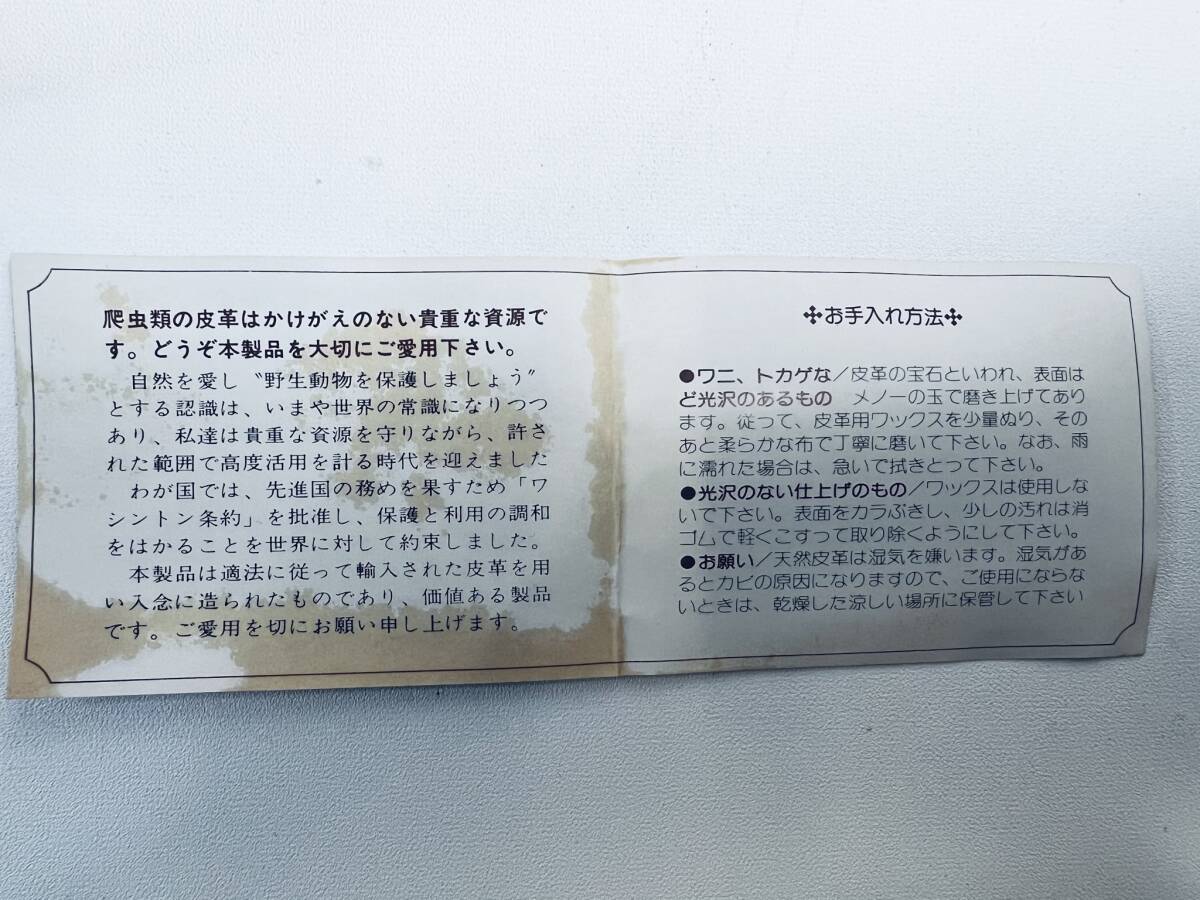 爬虫類の皮革はかけがえのない貴重な資源で
す。どうぞ本製品を大切にご愛用下さい。
自然を愛し〝野生動物を保護しましょう〟
とする認識は、いまや世界の常識になりつつ
あり、私達は貴重な資源を守りながら、許さ
れた範囲で高度活用を計る時代を迎えました
わが国では、先進国の務めを果すため「ワ
シントン条約」を批准し、保護と利用の調和
をはかることを世界に対して約束しました。
本製品は適法に従って輸入された皮革を用
い入念に造られたものであり、価値ある製品
です。ご愛用を切にお願い申し上げます。
✣お手入れ方法✣
●ワニ、トカゲな/皮革の宝石といわれ、表面は
ど光沢のあるもの メノーの玉で磨き上げてあり
ます。従って、皮革用ワックスを少量ぬり、その
あと柔らかな布で丁寧に磨いて下さい。なお、雨
に濡れた場合は、急いで拭きとって下さい。
●光沢のない仕上げのもの/ワックスは使用しな
いで下さい。表面をカラぶきし、少しの汚れは消
ゴムで軽くこすって取り除くようにして下さい。
●お願い/天然皮革は湿気を嫌います。湿気があ
るとカビの原因になりますので、ご使用にならな
いときは、乾燥した涼しい場所に保管して下さい